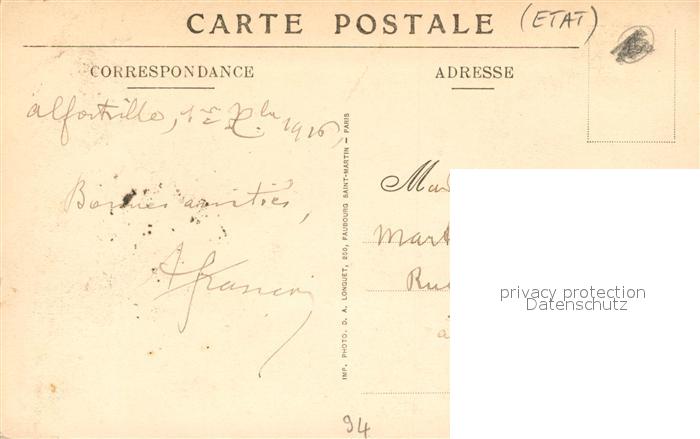 CARTE POSTALE (ETAT)
CORRESPONDANCE
ADRESSE
Alfortville, 1er Xbre 1916,
Bonnes amitiés,
IMP. PHOTO. D. A. LONGUET, 250, FAUBOURG SAINT-MARTIN – PARIS
Mad
Mart
Rue
à
privacy protection
Datenschutz
94